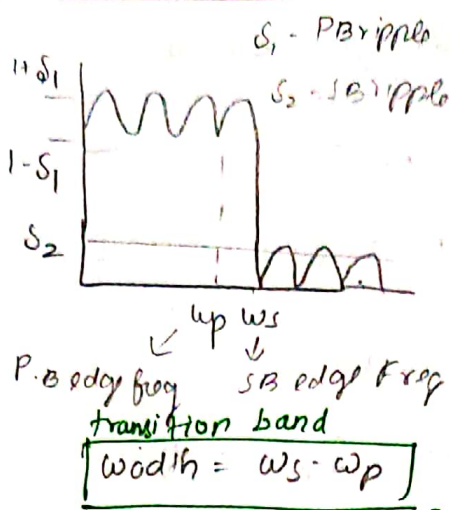 δ₁ - PB ripple
1+δ₁
δ₂ - SB ripple
1-δ₁
δ₂
ωp ωs
P.B edge freq SB edge Freq
transition band
width = ωs - ωp